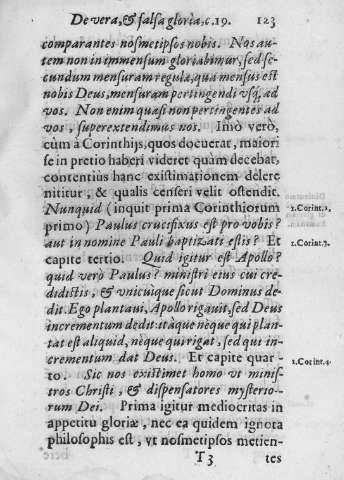 De vera, & falsa gloria, c.19. 123
comparantes nosmetipsos nobis. Nos au-
tem non in immensum gloriabimur, sed se-
cundum mensuram regulæ, qua mensus est
nobis Deus, mensuram pertingendi usq; ad
vos. Non enim quasi non pertingentes ad
vos, superextendimus nos. Imò verò,
cùm à Corinthijs, quos docuerat, maiori
se in pretio haberi videret quàm decebat,
contentiùs hanc existimationem delere
nititur, & qualis censeri velit ostendit.
Nunquid (inquit prima Corinthiorum 1.Corint.1,
primo) Paulus crucifixus est pro vobis?
aut in nomine Pauli baptizati estis? Et 1.Corint.3.
capite tertio. Quid igitur est Apollo?
quid verò Paulus? ministri eius cui cre-
didistis, & unicuique sicut Dominus de-
dit. Ego plantaui, Apollo rigauit, sed Deus
incrementum dedit: itàque nèque qui plan-
tat est aliquid, nèque qui rigat, sed qui in-
crementum dat Deus. Et capite quar-
to. Sic nos existimet homo ut minis- 1.Corint.4.
tros Christi, & dispensatores mysterio-
rum Dei. Prima igitur mediocritas in
appetitu gloriæ, nec ea quidem ignota
philosophis est, vt nosmetipsos metien-
T3 tes